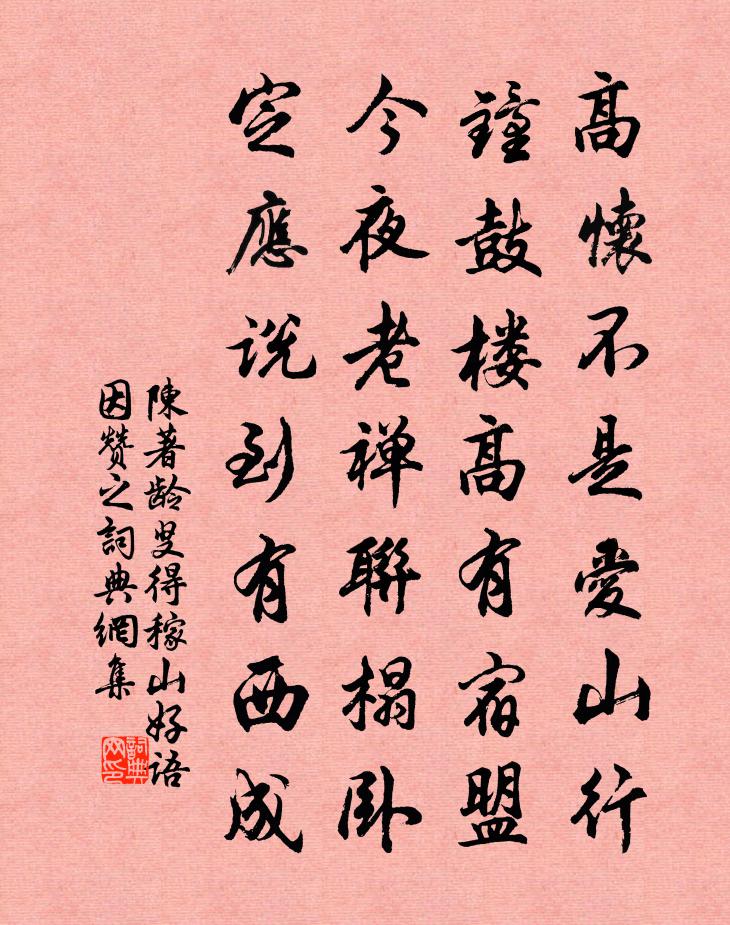 高懷不是愛山行
鐘鼓樓高有宿盟
今夜老禪聯榻卧
定應説到有西成
陳著龄叟得稼山好语
因赞之詞典網集
詞典网印